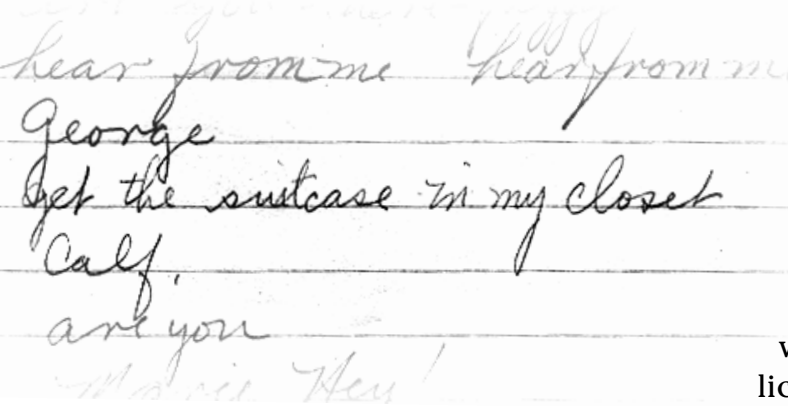 hear from me hear from m
George
get the suitcase in my closet
Calf.
are you
Hey!